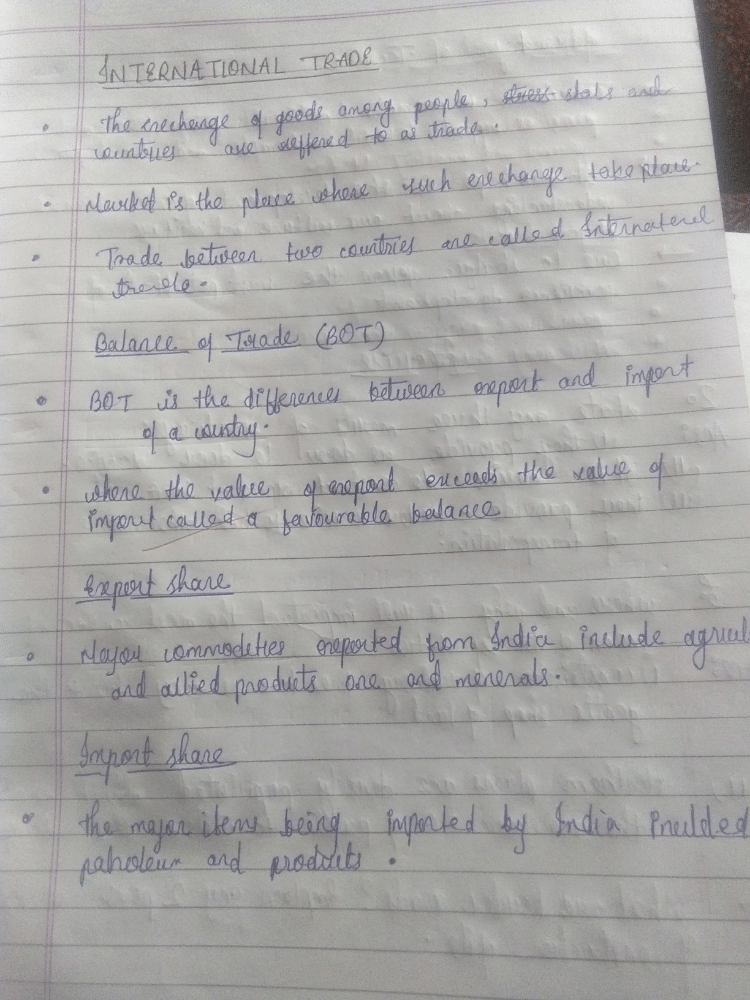 INTERNATIONAL TRADE
• The exechange of goods among people, stress stats and
countries are reffered to as trade.
• Market is the place where such exechange take place.
• Trade between two countries are called International
trade.
Balance of Trade (BOT)
• BOT is the difference between export and import
of a country.
• where the value of export exceeds the value of
import called a favourable balance
Export share
• Mayou commodities exported from India include agricul
and allied products one and menerals.
Import share
• The major items being imported by India inculded
patroleum and products.